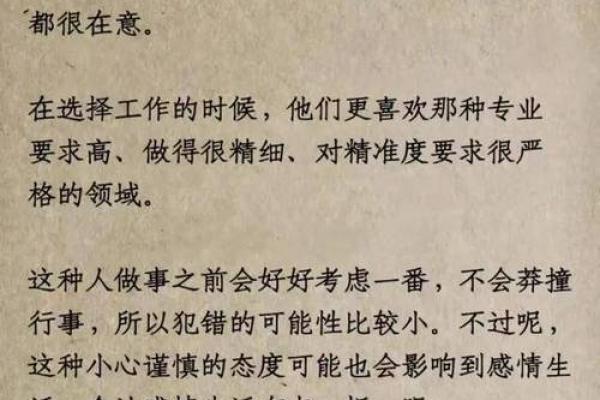 都很在意。
在选择工作的时候，他们更喜欢那种专业
要求高、做得很精细、对精准度要求很严
格的领域。
这种人做事之前会好好考虑一番，不会莽撞
行事，所以犯错的可能性比较小。不过呢，
这种小心谨慎的态度可能也会影响到感情生